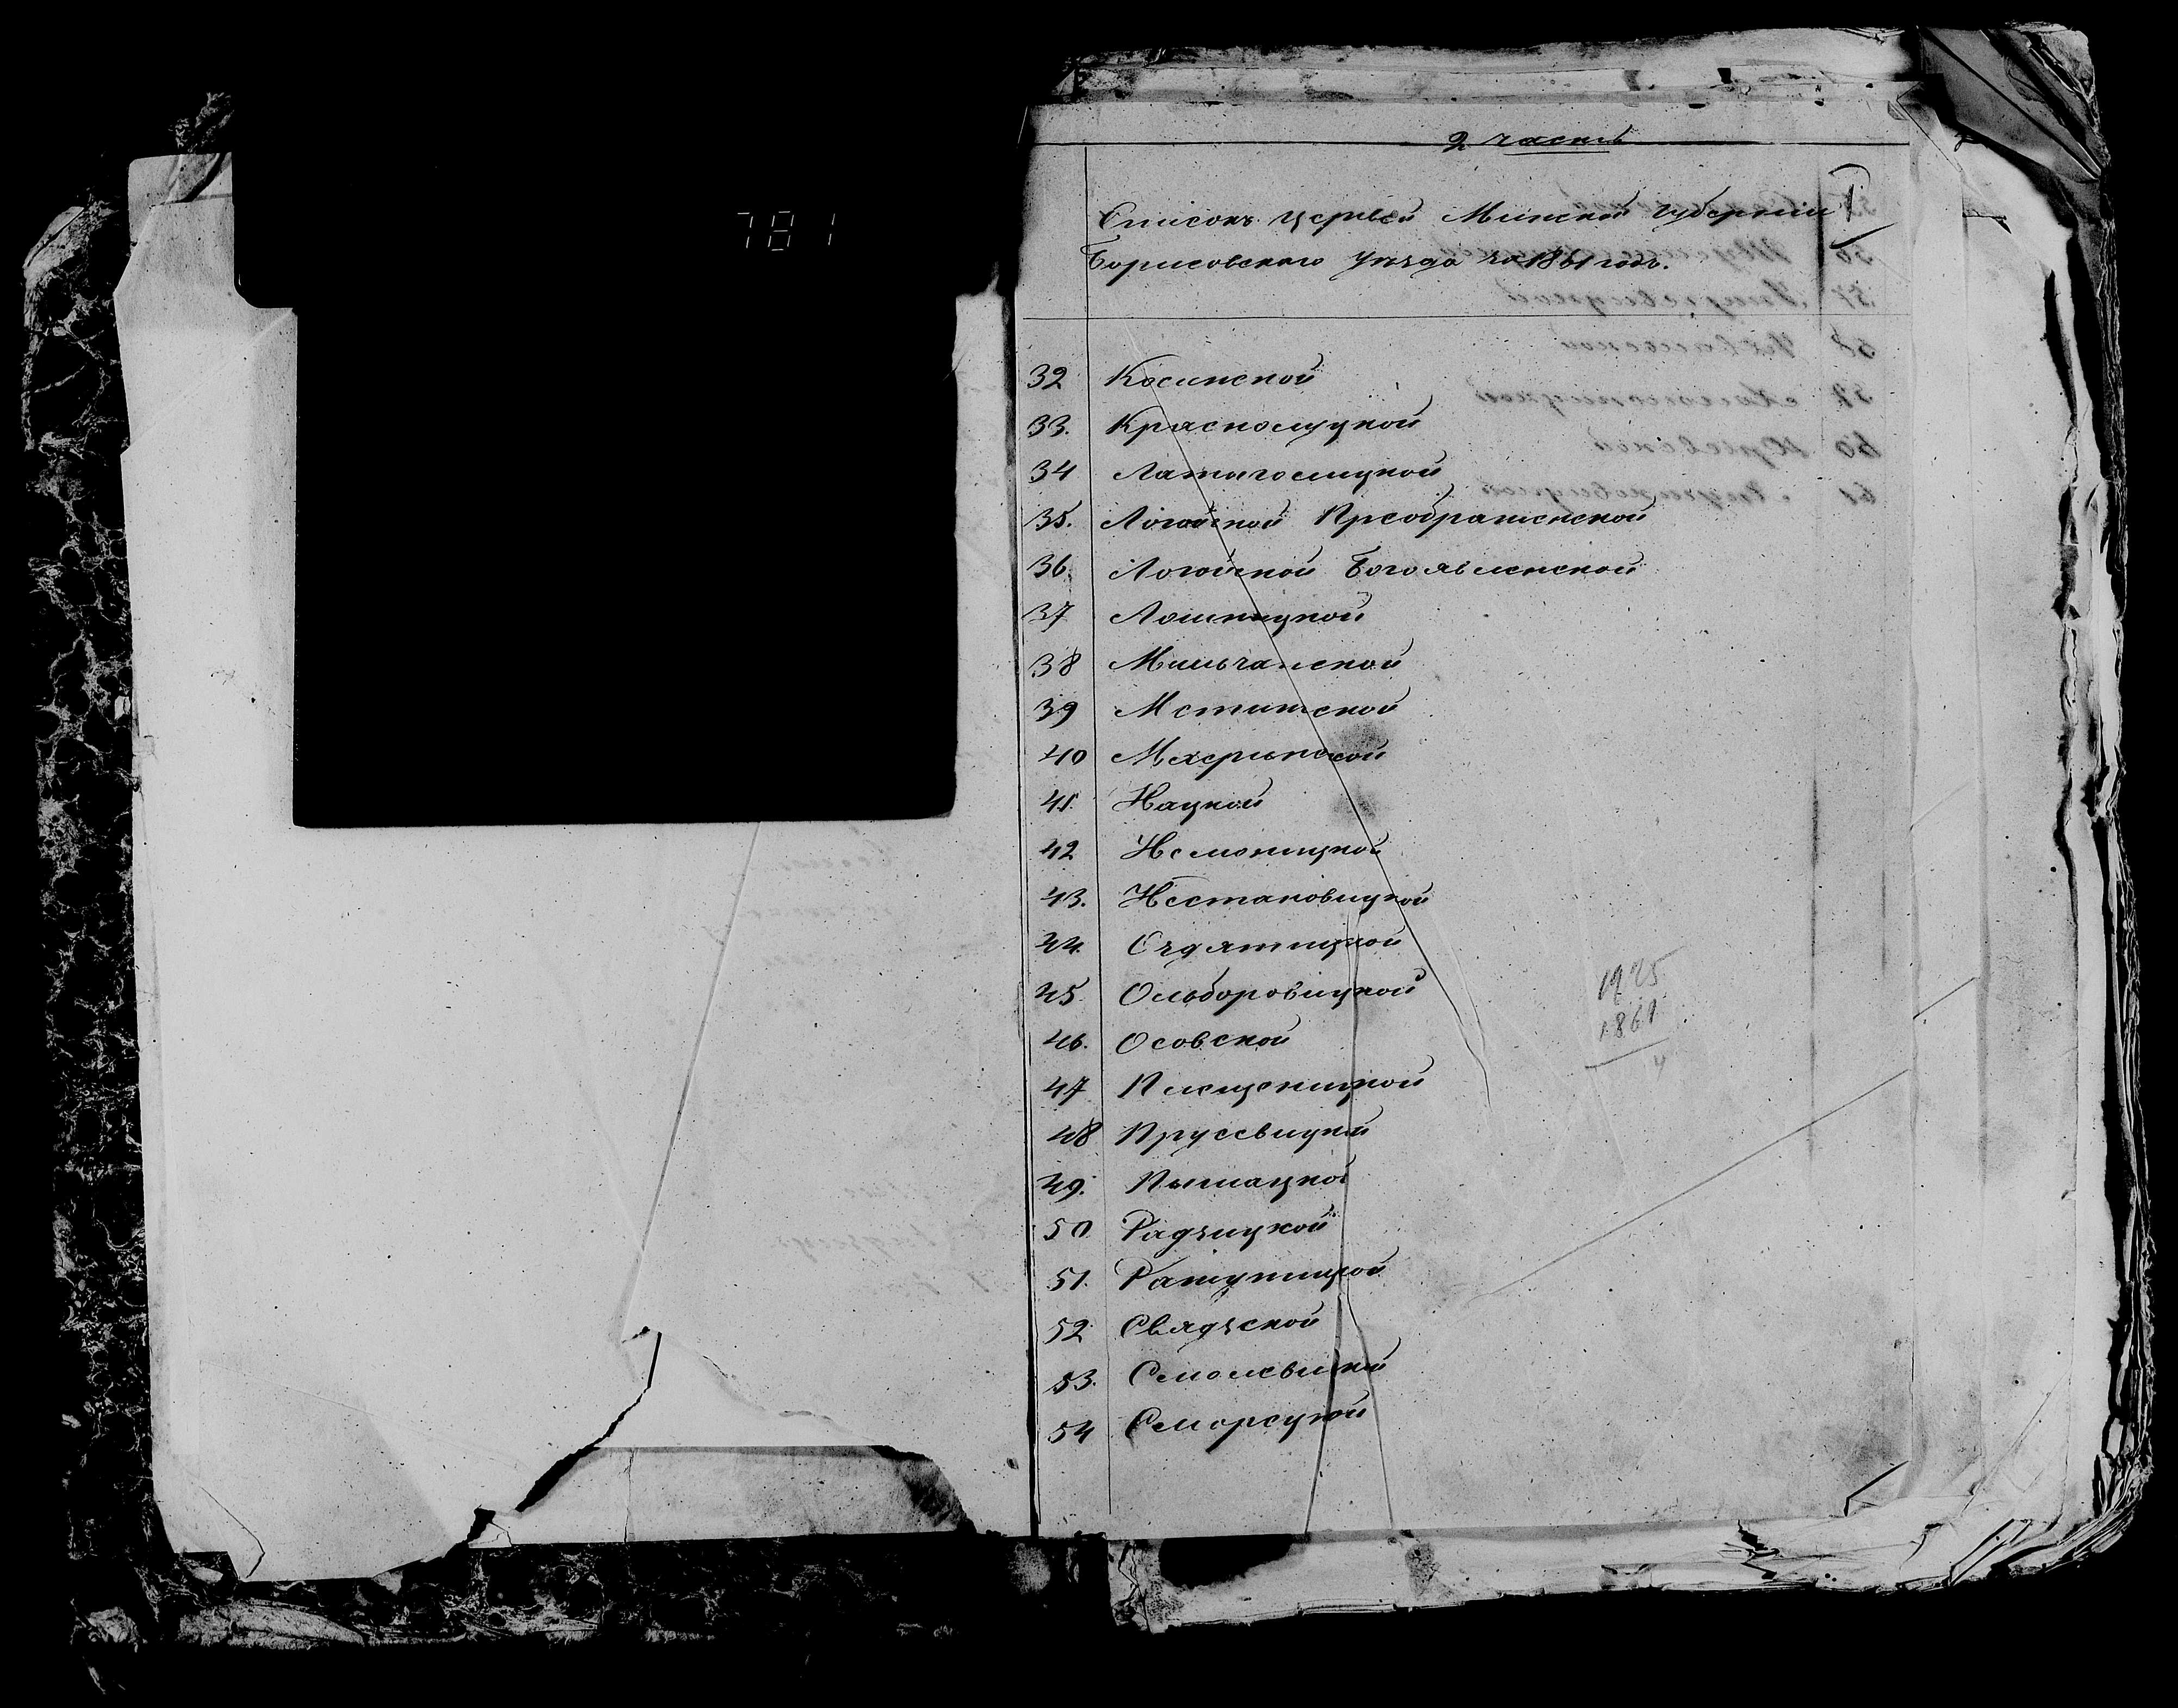 781
2 часть
1
Списокъ церквей Минской губерніи
Борисовскаго уѣзда за 1861 годъ.
32 Косинской
33. Краснолуцкой
34 Латыголицкой
35. Логойской Преображенской
36. Логойской Богоявленской
37 Лошницкой
38 Мильчанской
39 Мстижской
40 Мхеринской
41. Нацкой
42 Немоницкой
43. Нестановицкой
44. Оздятицкой
45. Ольборовицкой
46. Осовской
47 Плещеницкой
48 Пруссвицкой
49. Пышацкой
50 Радзицкой
51. Ратутицкой
52 Свядской
53. Смолевицкой
54 Сморсуцкой
1925
1861
4